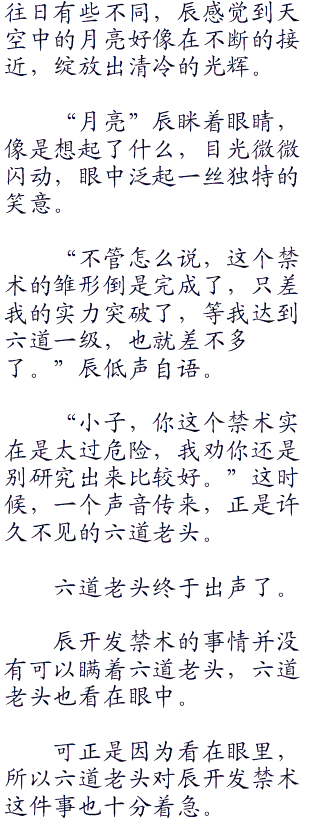 往日有些不同，辰感觉到天
空中的月亮好像在不断的接
近，绽放出清冷的光辉。
“月亮”辰眯着眼睛，
像是想起了什么，目光微微
闪动，眼中泛起一丝独特的
笑意。
“不管怎么说，这个禁
术的雏形倒是完成了，只差
我的实力突破了，等我达到
六道一级，也就差不多
了。”辰低声自语。
“小子，你这个禁术实
在是太过危险，我劝你还是
别研究出来比较好。”这时
候，一个声音传来，正是许
久不见的六道老头。
六道老头终于出声了。
辰开发禁术的事情并没
有可以瞒着六道老头，六道
老头也看在眼中。
可正是因为看在眼里，
所以六道老头对辰开发禁术
这件事也十分着急。